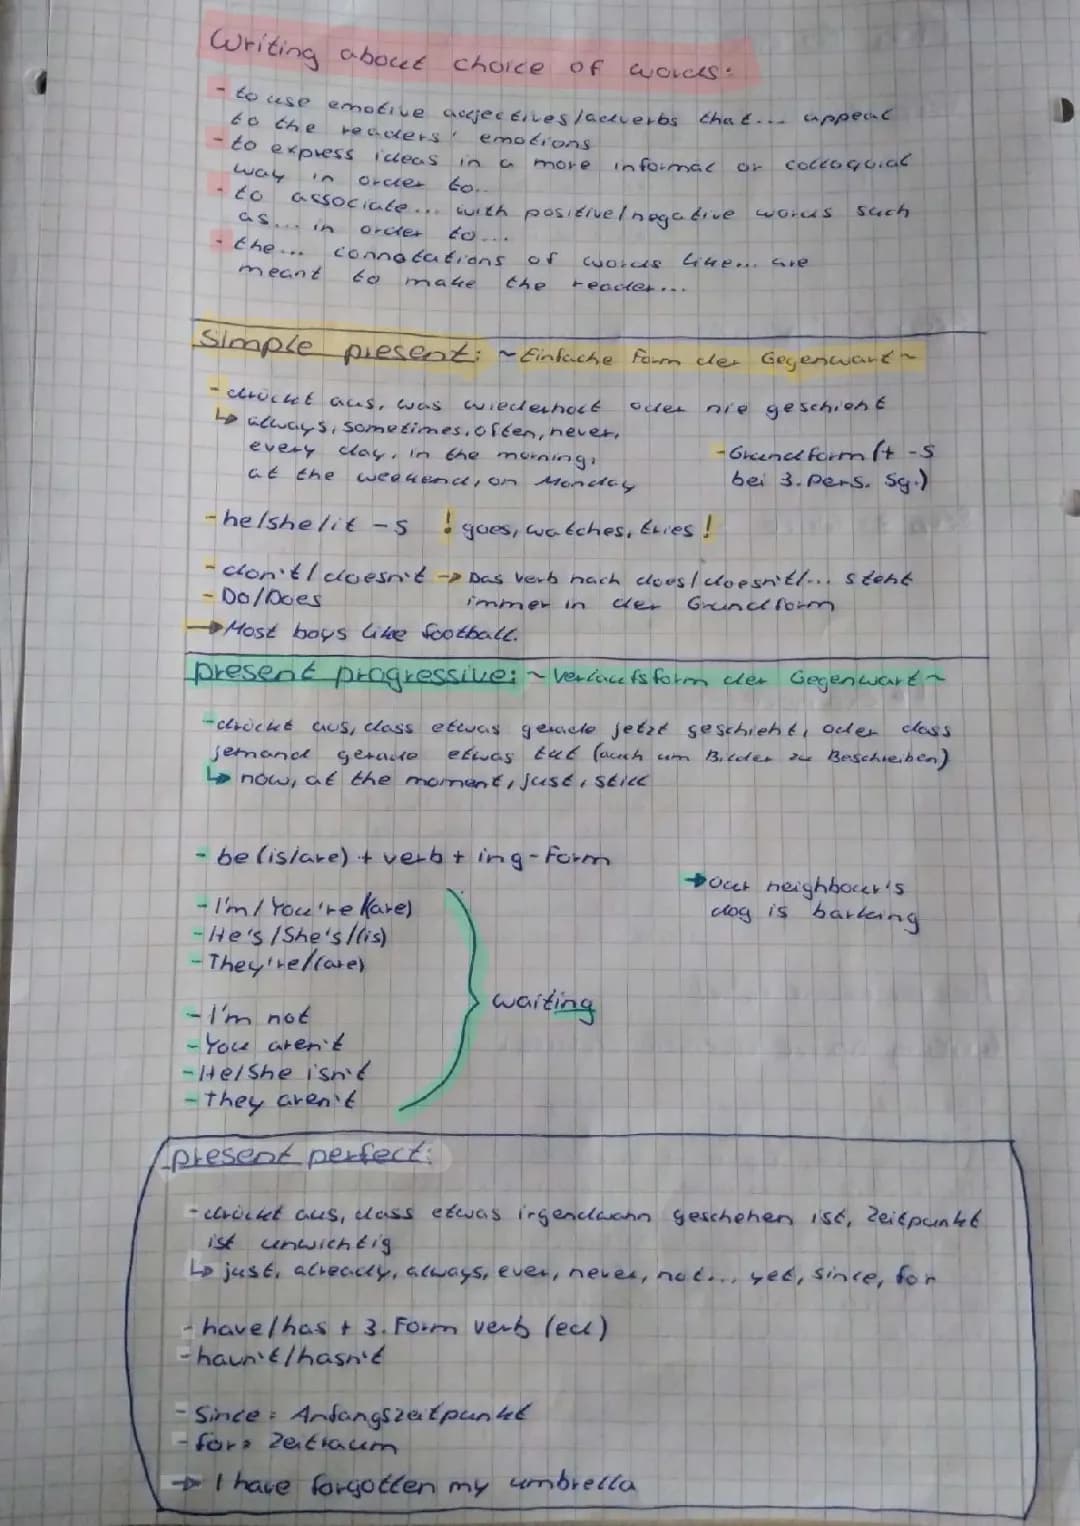 Writing about choice of words:
- to use emotive adjectives/adverbs that... appeal
to the readers' emotions
- to express ideas in a more informal or colloquial
way in order to...
- to associate... with positive/negative words such
as... in order to...
- the... connotations of words like... are
meant to make the reader...
simple present: ~Einfache Form der Gegenwart~
- drückt aus, was wiederholt oder nie geschieht
↳ always, sometimes, often, never,
every day, in the morning,
at the weekend, on Monday
- Grundform (+ -s
bei 3. Pers. Sg.)
- he/she/it -s ! goes, watches, tries !
- don't/doesn't → Das Verb nach does/doesn't/... steht
immer in der Grundform
- Do/Does
→ Most boys like football.
present progressive: ~Verlaufsform der Gegenwart~
- drückt aus, dass etwas gerade jetzt geschieht, oder dass
jemand gerade etwas tut (auch um Bilder zu Beschreiben)
↳ now, at the moment, just, still
- be (is/are) + verb + ing-Form
→ Our neighbour's
dog is barking
- I'm/You're (are)
- He's/She's/(is)
- They're/(are)
waiting
- I'm not
- You aren't
- He/She isn't
- They aren't
present perfect:
- drückt aus, dass etwas irgendwann geschehen ist, Zeitpunkt
ist unwichtig
↳ just, already, always, ever, never, not... yet, since, for
- have/has + 3. Form verb (ed)
- havn't/hasn't
- Since = Anfangszeitpunkt
- for = Zeitraum
→ I have forgotten my umbrella